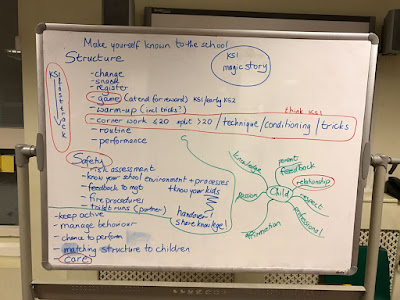 Make yourself known to the school
Structure
KS1
magic story
KS1
fast track
- change
- snack
- register
- game (at end for reward) KS1/early KS2
- warm-up (incl tricks?)
think KS1
- corner work ≤20 split >20 / technique/conditioning / tricks
- routine
- performance
Safety
- risk assessment
- know your school environment + processes
- feedback to mgt throu your kids
- fire procedures
- toilet runs (partner)
handover!
share knowledge!
- keep active
- manage behaviour
- chance to perform
- matching structure to children
- care
Child
knowledge
parent
feedback
relationship
respect
professional
passion
information